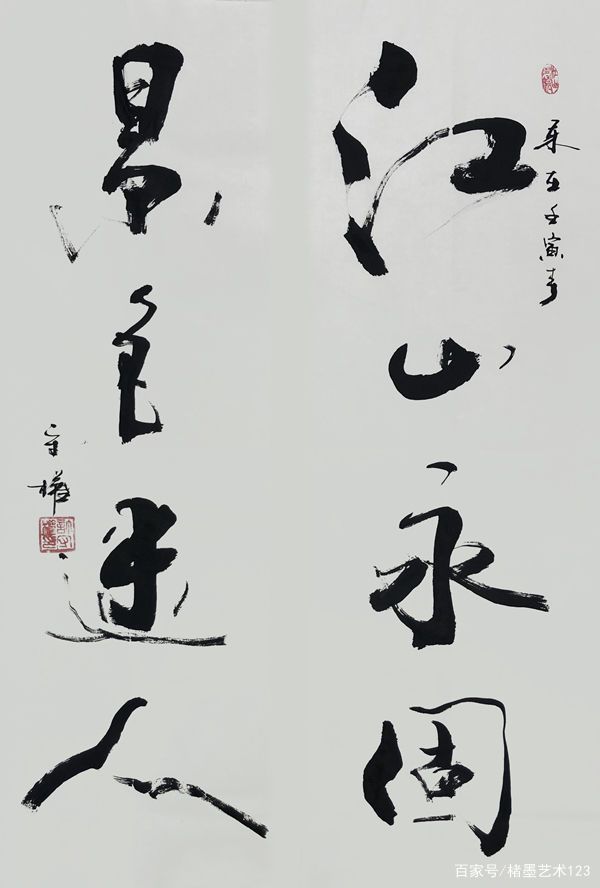 江山永固
景色迷人
壬寅春
守
百家号/楮墨艺术123